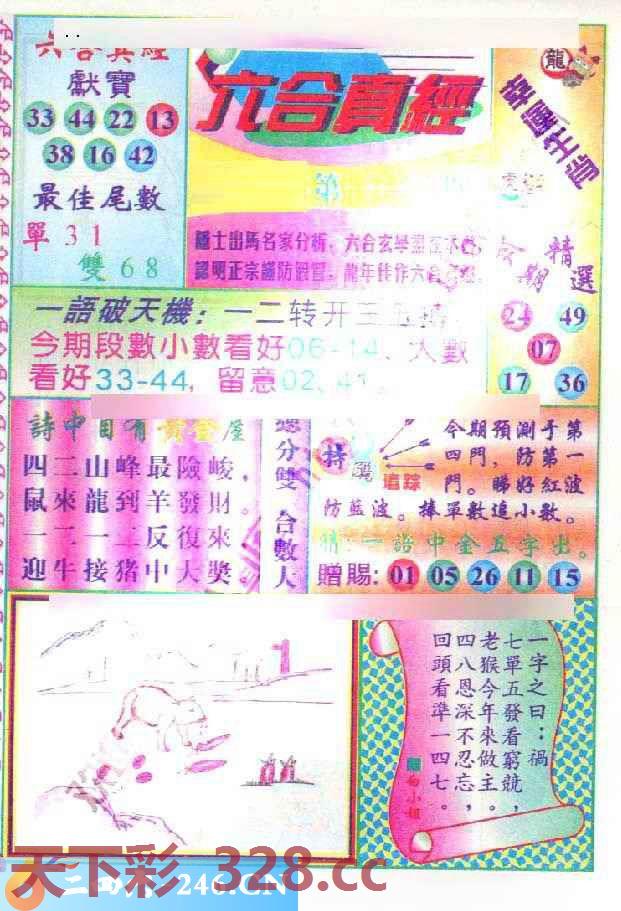 六合真經
獻寶
33 44 22 13
38 16 42
最佳尾數
單 3 1
雙 6 8
六合真經
第
龍
隱士出馬名家分析，六合玄學盡在本
認明正宗謹防假冒，龍年佳作六合
今期精選
24 49
07
17 36
一語破天機：一二转开三五
今期段數小數看好06-14、大數
看好33-44，留意02、41。
詩中自有黃金屋
四二山峰最險峻，
鼠來龍到羊發財。
一二一二反復來
迎牛接猪中大獎。
總分雙 合數大
特
追踪
今期預測于第
四門，防第一
門。睇好紅波
防藍波。捧單數追小數。
猜：一語中金五字出。
贈賜：01 05 26 11 15
1
一字之曰：禍
七單五發看窮競，
老猴今年來做主。
四八恩深不忍忘，
回頭看準一四七。
白小姐
天下彩 328.cc
二四六 246.CN